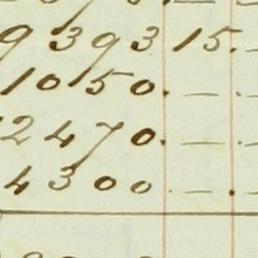 9393 15.
10150. —
2470. —
4300. — .